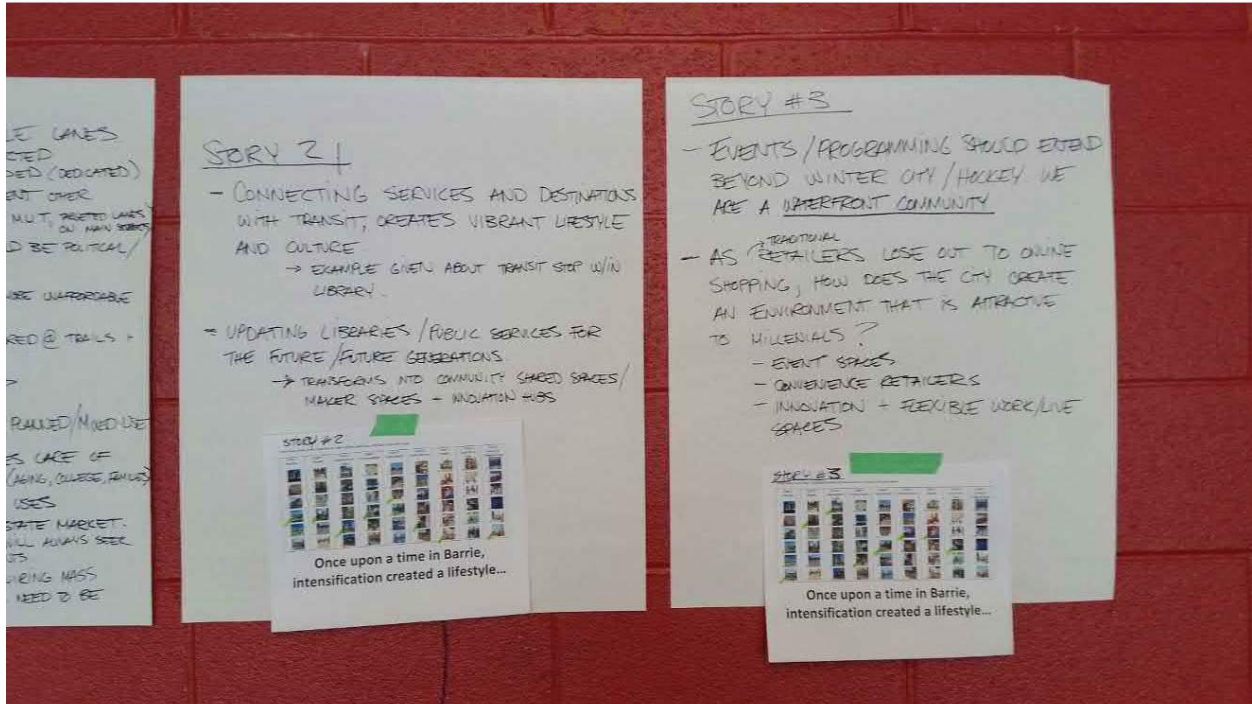 LE LANES
CTED
DED (DEDICATED)
ENT OTHER
M.U.T,
ON MAIN STREETS
D BE POLITICAL/
UNAFFORDABLE
RED @ TRAILS +
PLANNED/MIXED-USE
ES CARE OF
(AGING, COLLEGE, FAMILIES)
USES
STATE MARKET.
WILL ALWAYS SEEK
TS
IRING MASS
NEED TO BE
STORY 2
- CONNECTING SERVICES AND DESTINATIONS
WITH TRANSIT, CREATES VIBRANT LIFESTYLE
AND CULTURE
→ EXAMPLE GIVEN ABOUT TRANSIT STOP W/IN
LIBRARY.
- UPDATING LIBRARIES / PUBLIC SERVICES FOR
THE FUTURE / FUTURE GENERATIONS.
→ TRANSFORMS INTO COMMUNITY SHARED SPACES/
MAKER SPACES - INNOVATION HUBS
STORY #2
Once upon a time in Barrie,
intensification created a lifestyle...
STORY #3
- EVENTS / PROGRAMMING SHOULD EXTEND
BEYOND WINTER CITY / HOCKEY WE
ARE A WATERFRONT COMMUNITY
- AS TRADITIONAL RETAILERS LOSE OUT TO ONLINE
SHOPPING, HOW DOES THE CITY CREATE
AN ENVIRONMENT THAT IS ATTRACTIVE
TO MILLENIALS?
- EVENT SPACES
- CONVENIENCE RETAILERS
- INNOVATION + FLEXIBLE WORK/LIVE
SPACES
STORY #3
Once upon a time in Barrie,
intensification created a lifestyle...